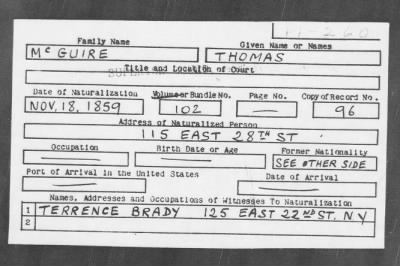 Family Name Given Name or Names
Mc GUIRE THOMAS
Title and Location of Court
Date of Naturalization Volume or Bundle No. Page No. Copy of Record No.
NOV. 18, 1859 102 — 96
Address of Naturalized Person
115 EAST 28TH ST
Occupation Birth Date or Age Former Nationality
— — SEE OTHER SIDE
Port of Arrival in the United States Date of Arrival
— —
Names, Addresses and Occupations of Witnesses To Naturalization
1 TERRENCE BRADY 125 EAST 22ND ST. N.Y
2